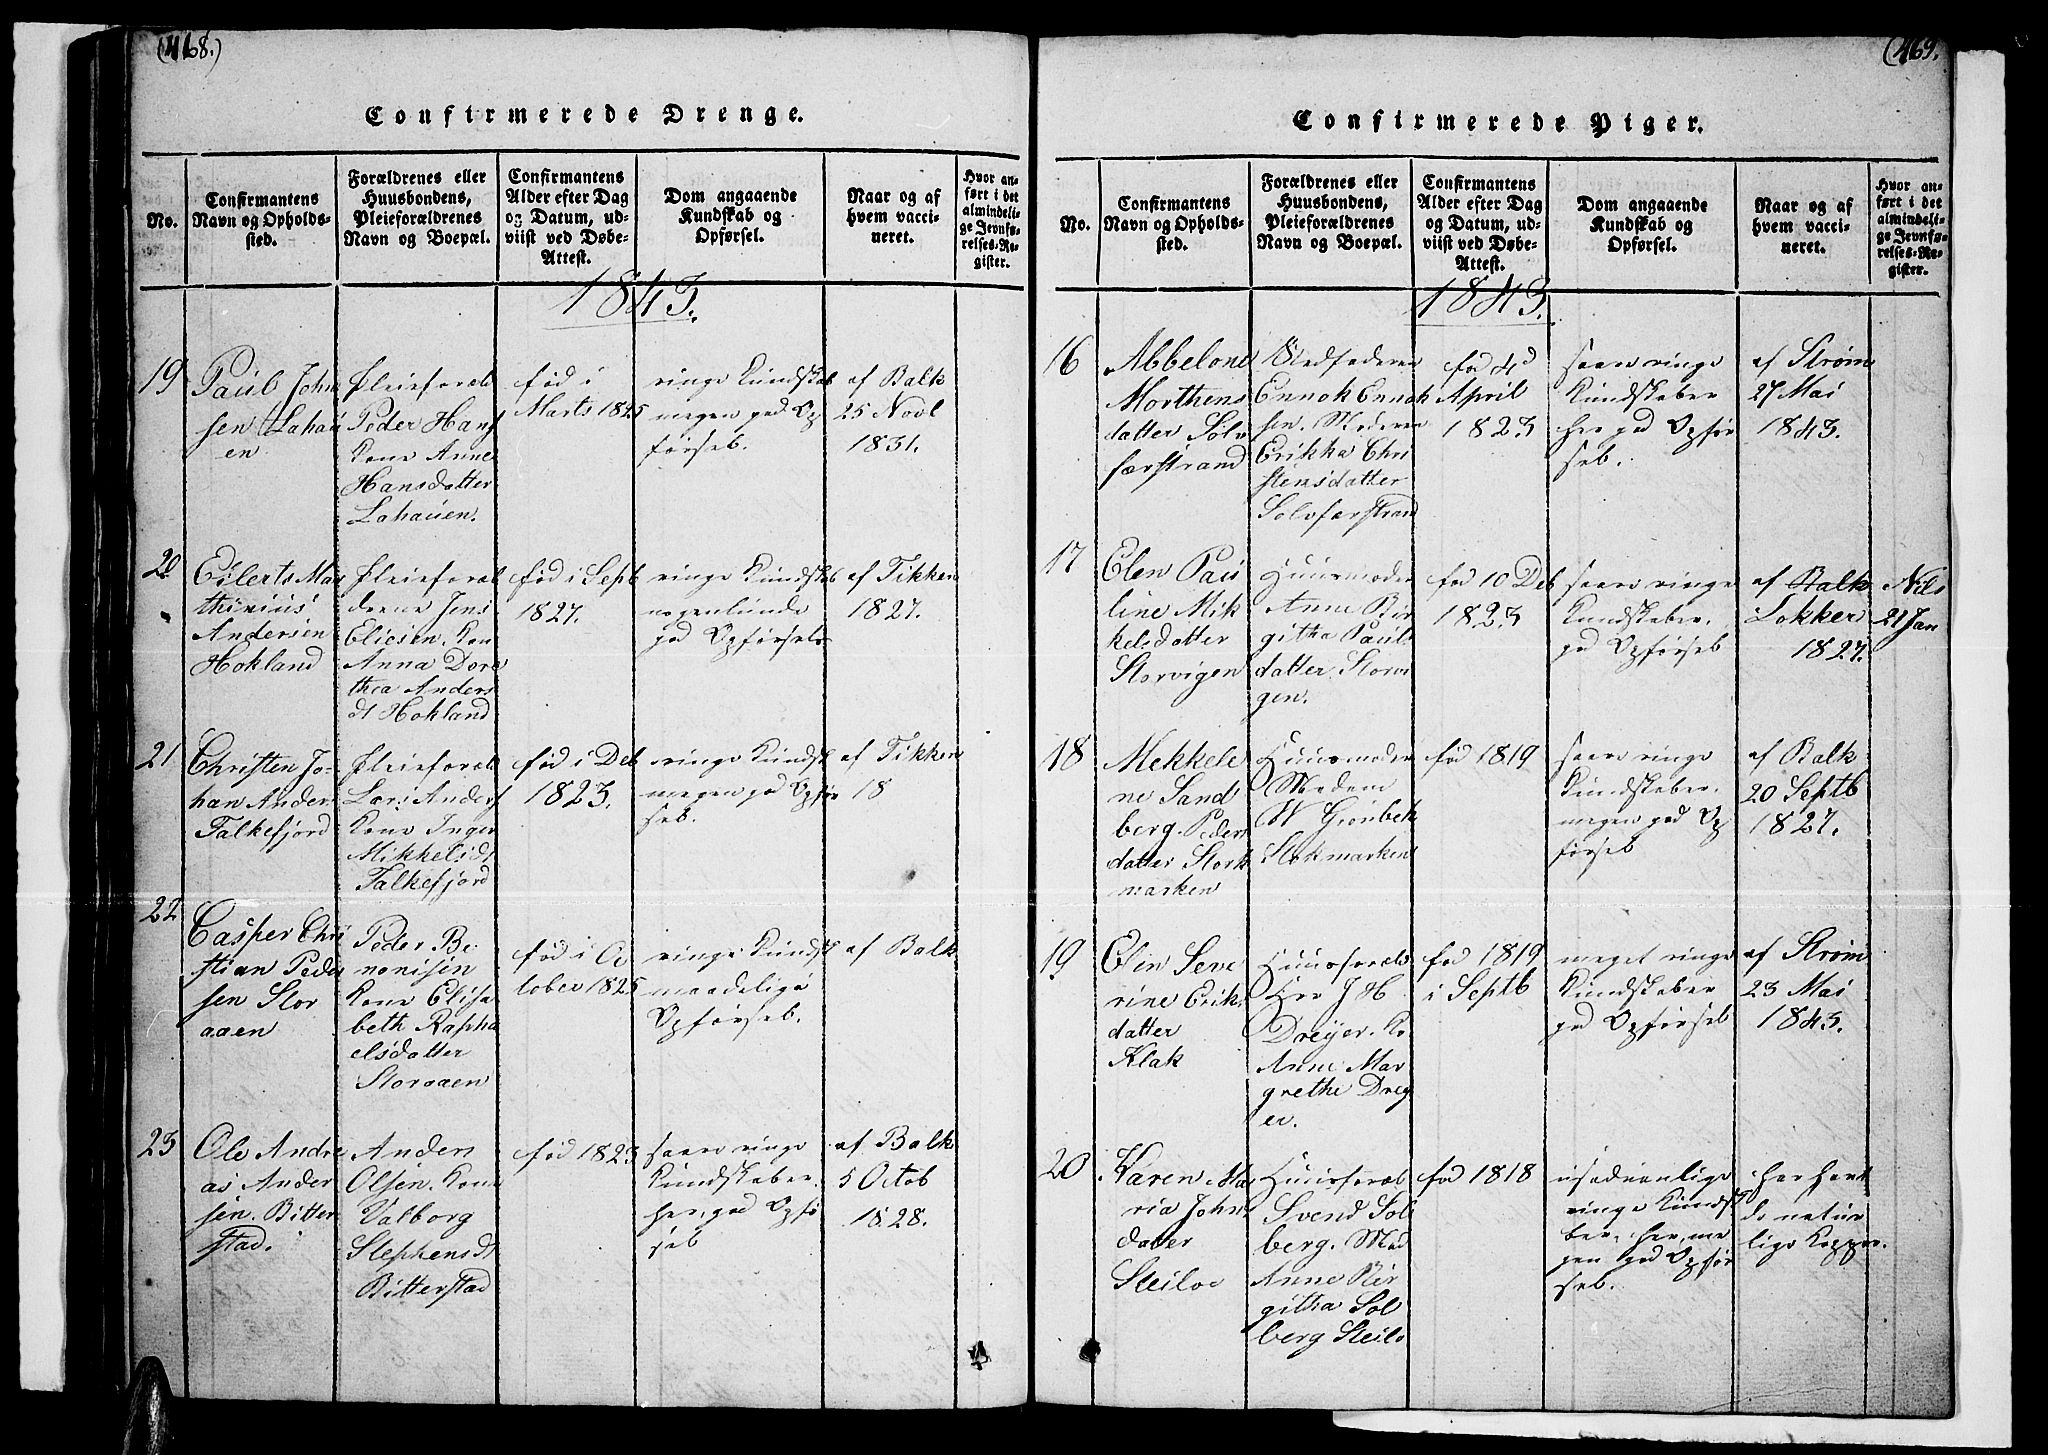 (468.)
Confirmerede Drenge.
No.
Confirmantens
Navn og Opholds-
sted.
Forældrenes eller
Huusbondens,
Pleieforældrenes
Navn og Boepæl.
Confirmantens
Alder efter Dag
og Datum, ud-
viist ved Døbe-
Attest.
Dom angaaende
Kundskab og
Opførsel.
Naar og af
hvem vacci-
neret.
Hvor an-
ført i det
almindeli-
ge Jevnfø-
relses-Re-
gister.
1843.
19
Paul John
sen Lahau
en
Pleieforæld
Peder Hans
Kone Anne
Hansdatter
Lahauen.
fød i
Marts 1825
ringe Kundskab
megen god Op
førsel.
af Balk
25 Novb
1831.
20
Eilerts Mar
thinius
Andersen
Hokland
Pleieforæl
drene Jens
Eliesen. Kon
Anna Doro
thea Anders
dt Hokland
fød i Septb
1827.
ringe Kundskb
nogenlunde
god Opførsel
af Tikken
1827.
21
Christen Jo-
han Anders
Falkefjord
Pleieforæl
Lars Anders
Kone Inger
Mikkelsdt
Falkefjord
fød i Deb
1823.
ringe Kundsk
megen god Opfør
sel.
af Tikken
18
22
Casper Chri
stian Peder
sen Stor
aaen
Peder Be
nonisen
Kone Elisa
beth Rapha
elsdatter
Storaaen
fød i Oc
tober 1825
ringe Kundsk
maadelige
Opførsel.
af Balk
23
Ole Andre
as Ander
sen. Bitter
stad.
Anders
Olsen. Kone
Valborg
Stephensdt
Bitterstad
fød 1823
saare ringe
Kundskaber.
god Opfø
sel
af Balk
5 Octob
1828.
(469.
Confirmerede Piger.
No.
Confirmantens
Navn og Opholds-
sted.
Forældrenes eller
Huusbondens,
Pleieforældrenes
Navn og Boepæl.
Confirmantens
Alder efter Dag
og Datum, ud-
viist ved Døbe-
Attest.
Dom angaaende
Kundskab og
Opførsel.
Naar og af
hvem vacci-
neret.
Hvor an-
ført i det
almindeli-
ge Jevnfø-
relses-Re-
gister.
1843.
16
Abbelone
Morthens
datter Sølv
færstrand
Stedfaderen
Ennok Ennok
sen. Moderen
Erikka Chri
stensdatter
Solvfærstrand
fød 4d
April
1823
saare ringe
Kundskaber
god Opfør
sel.
af Strøm
27 Mai
1843.
17
Elen Pau
line Mik
kelsdatter
Storvigen
Huusmoder
Anne Bir
githa Pauls
datter Storvi
gen.
fød 10 Deb
1823
saare ringe
Kundskaber.
god Opførsel
af Balk
Lokker
1827.
Nils
21 Jan
18
Mekkele
ne Sand
berg. Peders
datter Stork
marken
Huusmoder
Madem
W Grönbek
Stokmarken
fød 1819
saare ringe
Kundskaber.
megen god Op
førsel
af Balk
20 Septb
1827.
19
Elen Seve
rine Eriks
datter
Klak
Huusforæld
Hrr J H
Dreÿer. Ko
Anne Mar
grethe Dreÿ
er.
fød 1819
i Septb
meget ringe
Kundskaber
god Opførsel
af Strøm
23 Mai
1843.
20
Karen Ma
ria John
datter
Steiloe
Huusforæl
Svend Sol
berg. Mad
Anne Bir
githa Sol
berg Steilo
fød 1818
usædvanlige
ringe Kundsk
ber. me
gen god Opfør
sel.
har havt
de natur
lige Kopper.